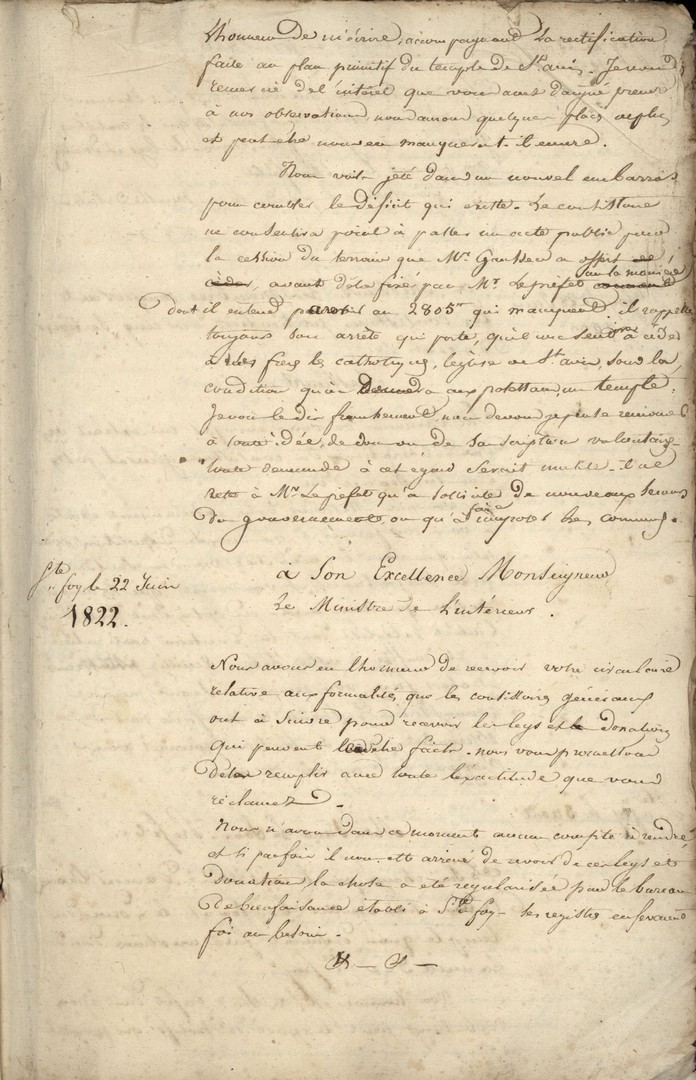 l'honneur de m'écrire, accompagnant la rectification
faite au plan primitif du temple de St. avis. Je vous
remercie de l'intérêt que vous avez daigné prendre
à nos observations, nous avons quelques places de plus
et peut être nous en manquera-t-il encore.
Nous voilà jeté dans un nouvel embarras
pour combler le déficit qui existe. Le consistoire
ne consentira point à passer un acte public pour
la cession du terrain que Mr. a offert de
céder, avant d'être fixé par Mr. Le préfet comment sur la manière
dont il entend pourvoir au 2805 qui manquent. il rappelle
toujours son arrêté qui porte, qu'il consent à céder
à nos frères les catholiques, l'église de St. avis, sous la
condition qu'on donnera aux protestans, un temple.
Je vous le dis franchement, nous devons renoncer
à toute idée, de don ou de souscription volontaire
toute demande à cet égard serait inutile. il ne
reste à Mr. Le préfet qu'à solliciter de nouveaux secours
du gouvernement, ou qu'à faire imposer les communes.
Ste
foy le 22 Juin
1822.
à Son Excellence Monseigneur
Le Ministre de l'intérieur.
Nous avons eu l'honneur de recevoir votre circulaire
relative aux formalités que les consistoires généraux
ont à suivre pour recevoir les legs et les donations
qui peuvent leur être faits. nous vous promettons
de les remplir avec toute l'exactitude que vous
réclamez.
Nous n'avons dans ce moment aucun compte à rendre,
et si parfois il nous est arrivé de recevoir de ces legs et
donation la chose a été régularisée par le bureau
de bienfaisance établi à Ste foy. ses registres en feront
foi au besoin.